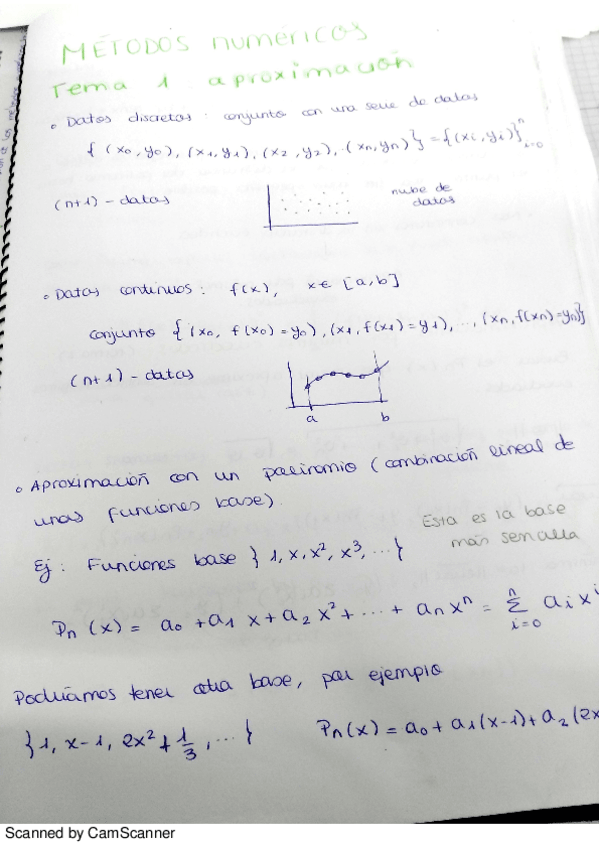 MÉTODOS numéricos
Tema 1 aproximación
• Datos discretos : conjunto con una serie de datos
{ (x0, y0), (x1, y1), (x2, y2), ·(xn, yn) } = {(xi, yi)}ⁿi=0
(n+1) - datos
nube de datos
• Datos continuos : f(x), x ∈ [a,b]
conjunto { (x0, f(x0) = y0), (x1, f(x1) = y1), ..., (xn, f(xn) = yn)}
(n+1) - datos
a b
• Aproximación con un polinomio (combinación lineal de
unas funciones base).
Esta es la base
más sencilla
Ej : Funciones base { 1, x, x², x³, ... }
Pn (x) = a0 + a1 x + a2 x² + ... + an xⁿ = Σ ai xⁱ
n
i=0
Podríamos tener otra base, por ejemplo
{ 1, x-1, 2x² + 1/3 , ... }
Pn(x) = a0 + a1(x-1) + a2 (2x
Scanned by CamScanner